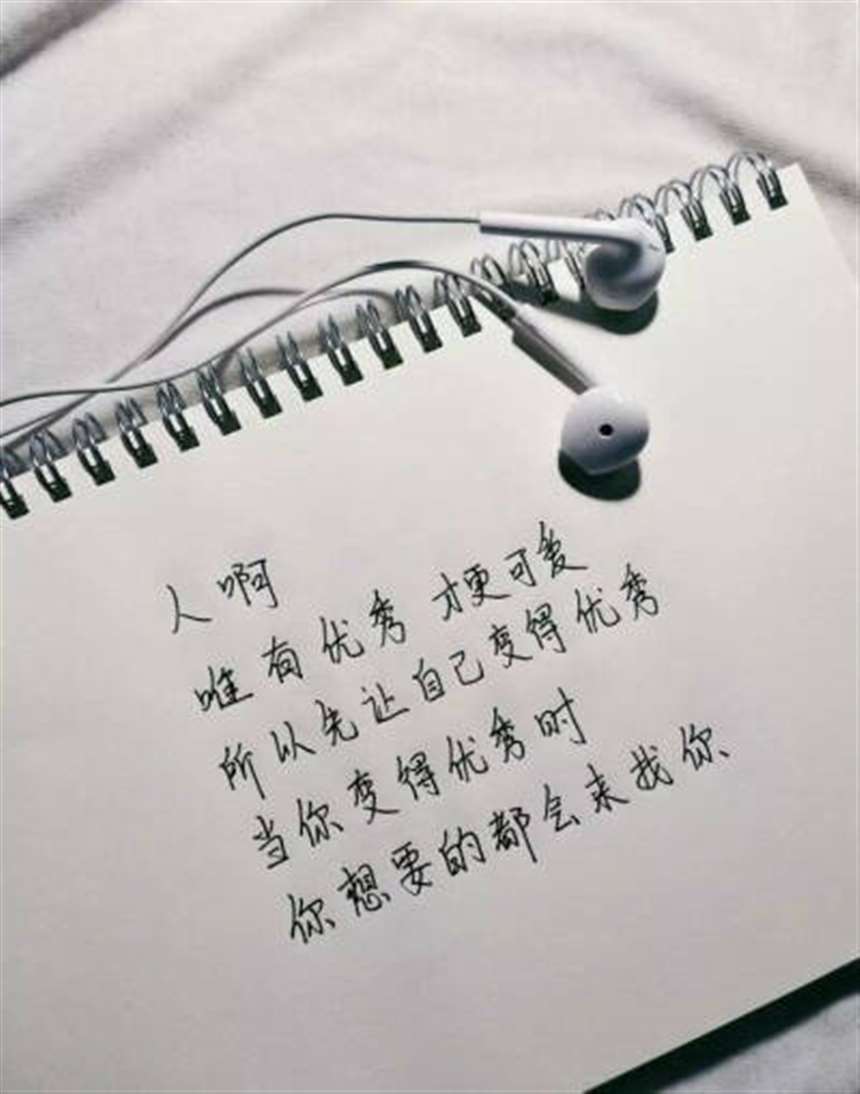 人啊
唯有优秀才更可爱
所以先让自己变得优秀
当你变得优秀时
你想要的都会来找你